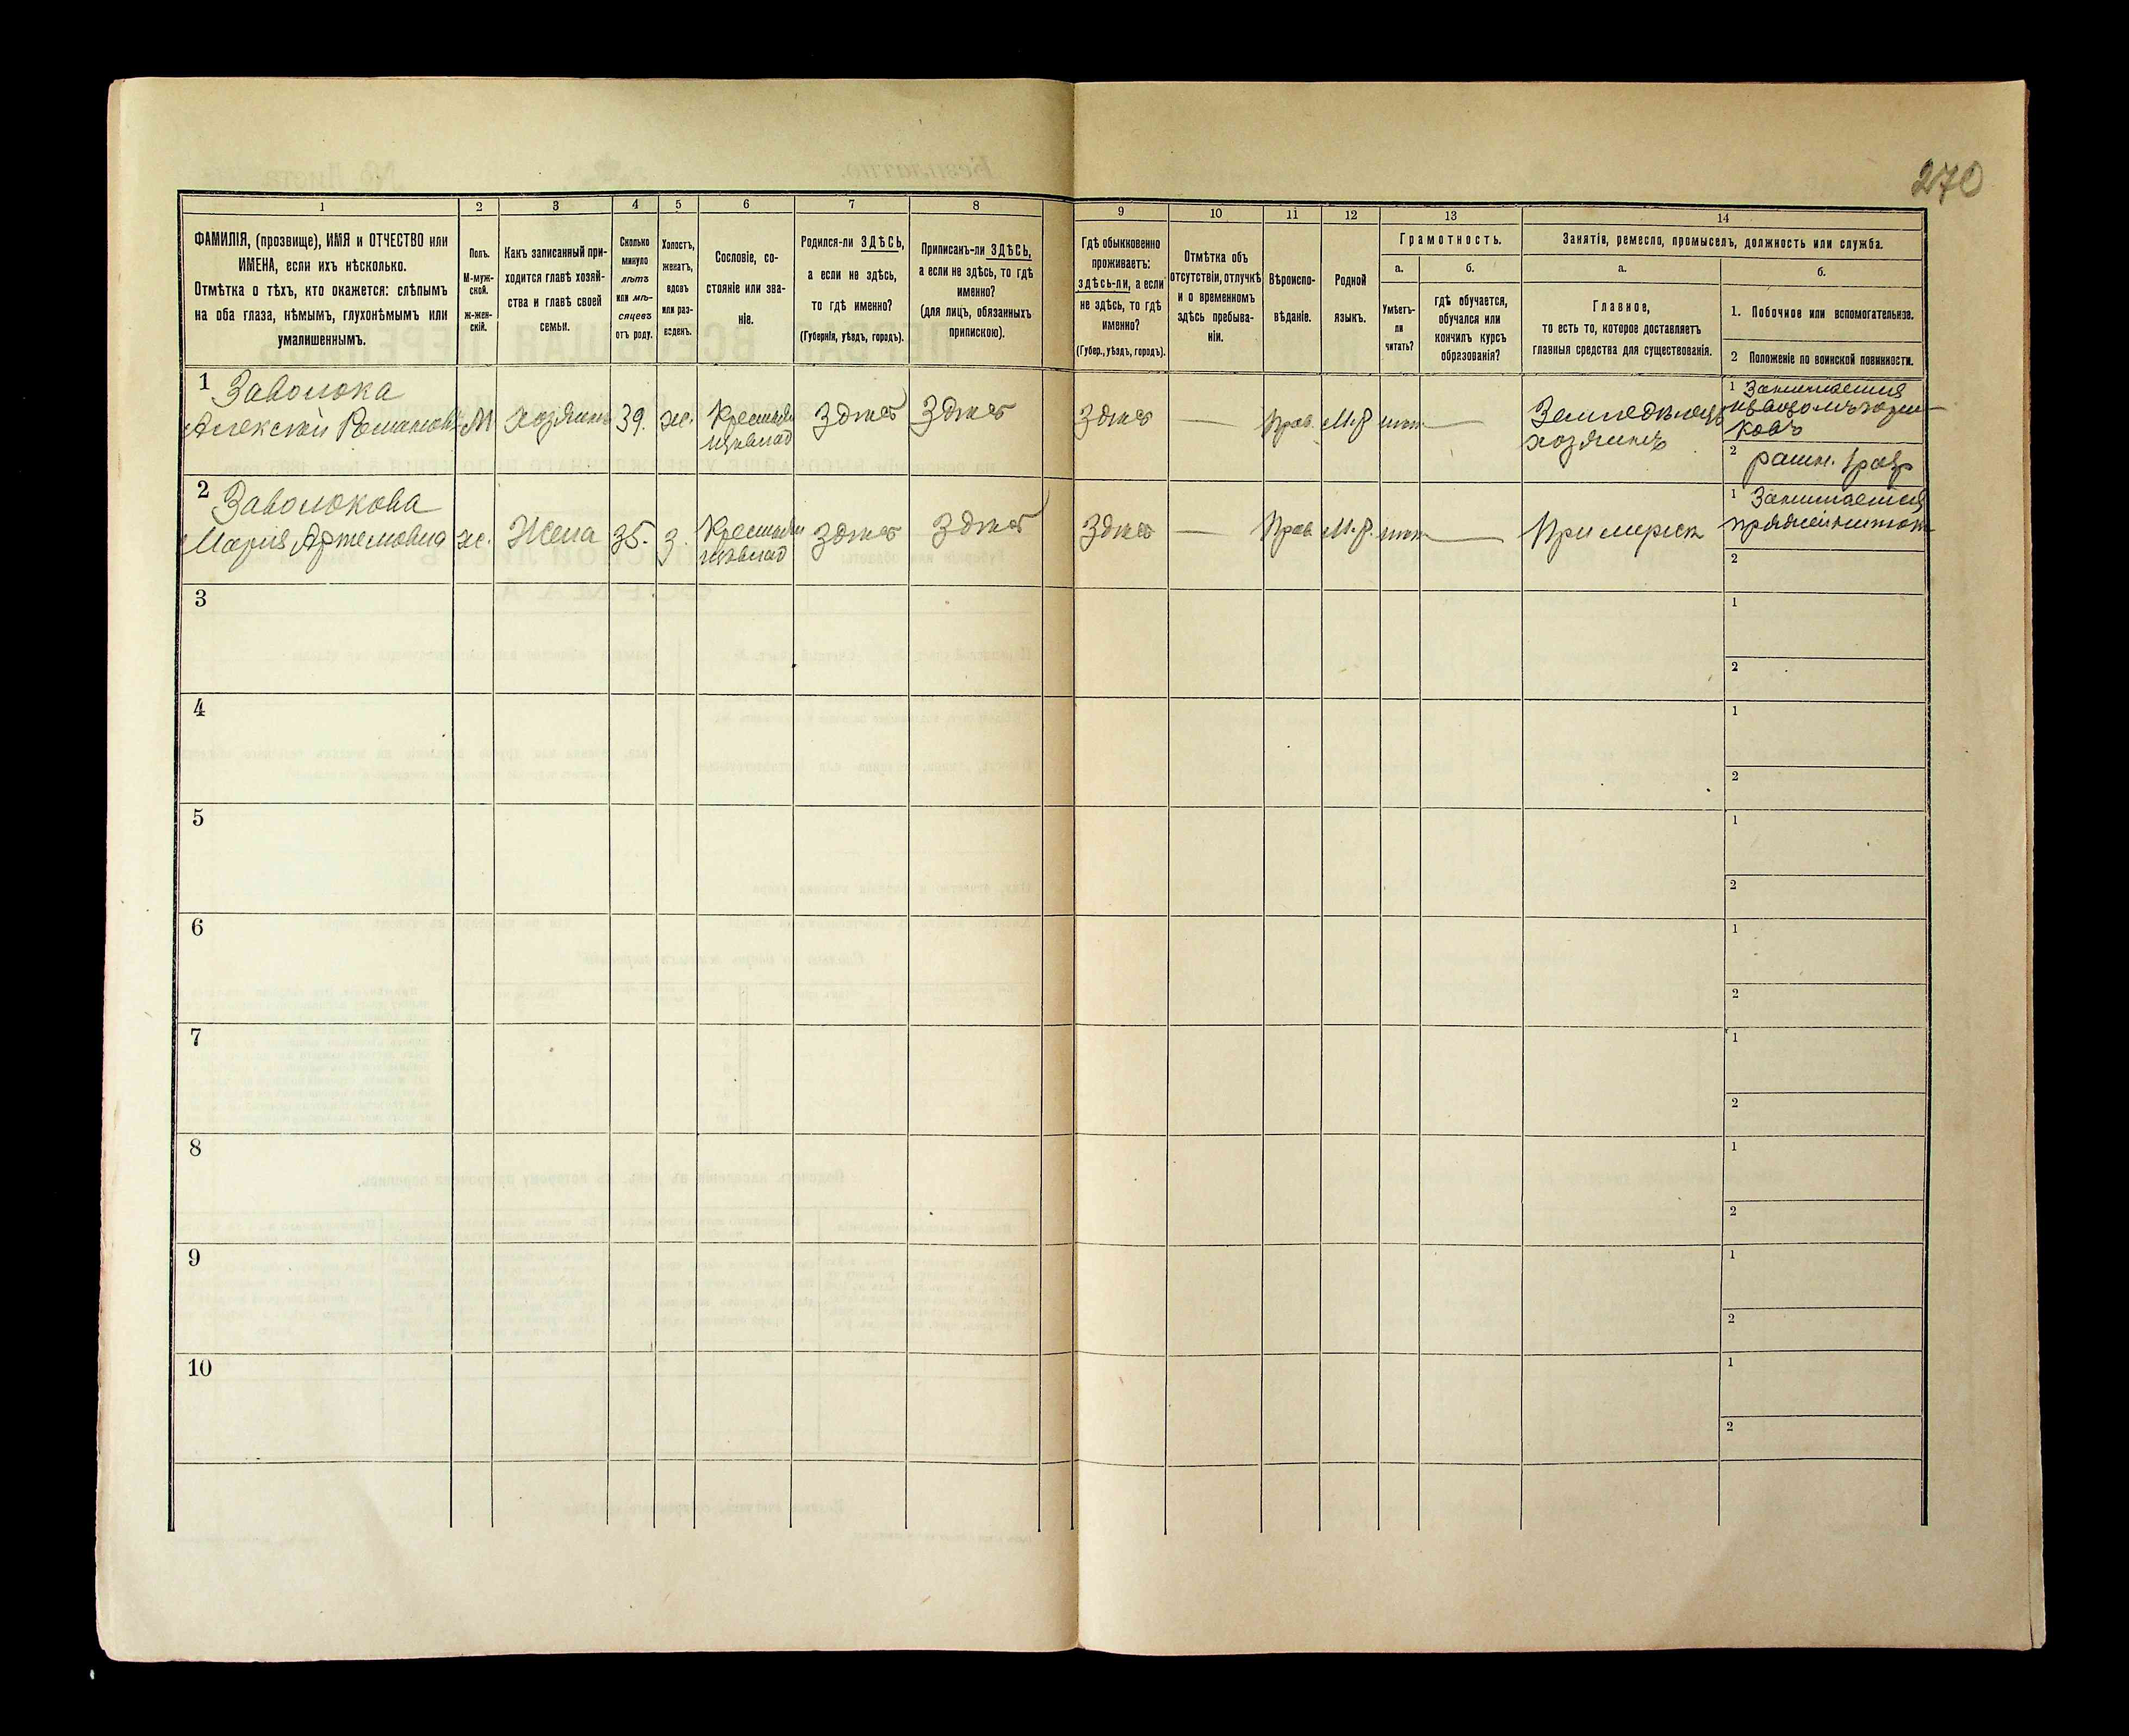 270
1
2
3
4
5
6
7
8
9
10
11
12
13
14
ФАМИЛІЯ, (прозвище), ИМЯ и ОТЧЕСТВО или
ИМЕНА, если ихъ нѣсколько.
Отмѣтка о тѣхъ, кто окажется: слѣпымъ
на оба глаза, нѣмымъ, глухонѣмымъ или
умалишеннымъ.
Полъ.
М-муж-
ской.
ж-жен-
скій.
Какъ записанный при-
ходится главѣ хозяй-
ства и главѣ своей
семьи.
Сколько
минуло
лѣтъ
или мѣ-
сяцевъ
отъ роду.
Холостъ,
женатъ,
вдовъ
или раз-
веденъ.
Сословіе, со-
стояніе или зва-
ніе.
Родился-ли ЗДѢСЬ,
а если не здѣсь,
то гдѣ именно?
(Губернія, уѣздъ, городъ).
Приписанъ-ли ЗДѢСЬ,
а если не здѣсь, то гдѣ
именно?
(для лицъ, обязанныхъ
припискою).
Гдѣ обыкновенно
проживаетъ:
здѣсь-ли, а если
не здѣсь, то гдѣ
именно?
(Губер., уѣздъ, городъ).
Отмѣтка объ
отсутствіи, отлучкѣ
и о временномъ
здѣсь пребыва-
ніи.
Вѣроиспо-
вѣданіе.
Родной
языкъ.
Грамотность.
а.
Умѣетъ-
ли
читать?
б.
гдѣ обучается,
обучался или
кончилъ курсъ
образованія?
Занятія, ремесло, промыселъ, должность или служба.
а.
Главное,
то есть то, которое доставляетъ
главныя средства для существованія.
б.
1. Побочное или вспомогательное.
2 Положеніе по воинской повинности.
1 Заволока
Алексѣй Романовъ
М
хозяинъ
39.
ж.
Крестьян
Здѣсь
Здѣсь
Здѣсь
—
Прав.
М.Р.
нѣтъ
—
Земледѣлецъ
хозяинъ
1 Занимается
ковъ
2
2 Заволокова
Марія Артемовна
ж.
Жена
35.
з.
Крестьян
Здѣсь
Здѣсь
Здѣсь
—
Прав
М.Р.
нѣтъ
—
При мужѣ
1 Занимается
2
3
1
2
4
1
2
5
1
2
6
1
2
7
1
2
8
1
2
9
1
2
10
1
2